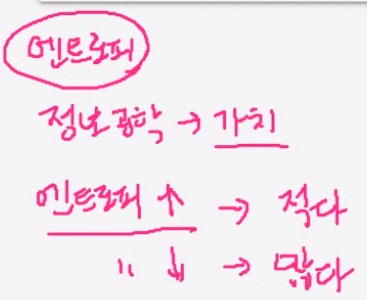 엔트로피
정보공학 → 가치
엔트로피 ↑ → 적다
" ↓ → 많다